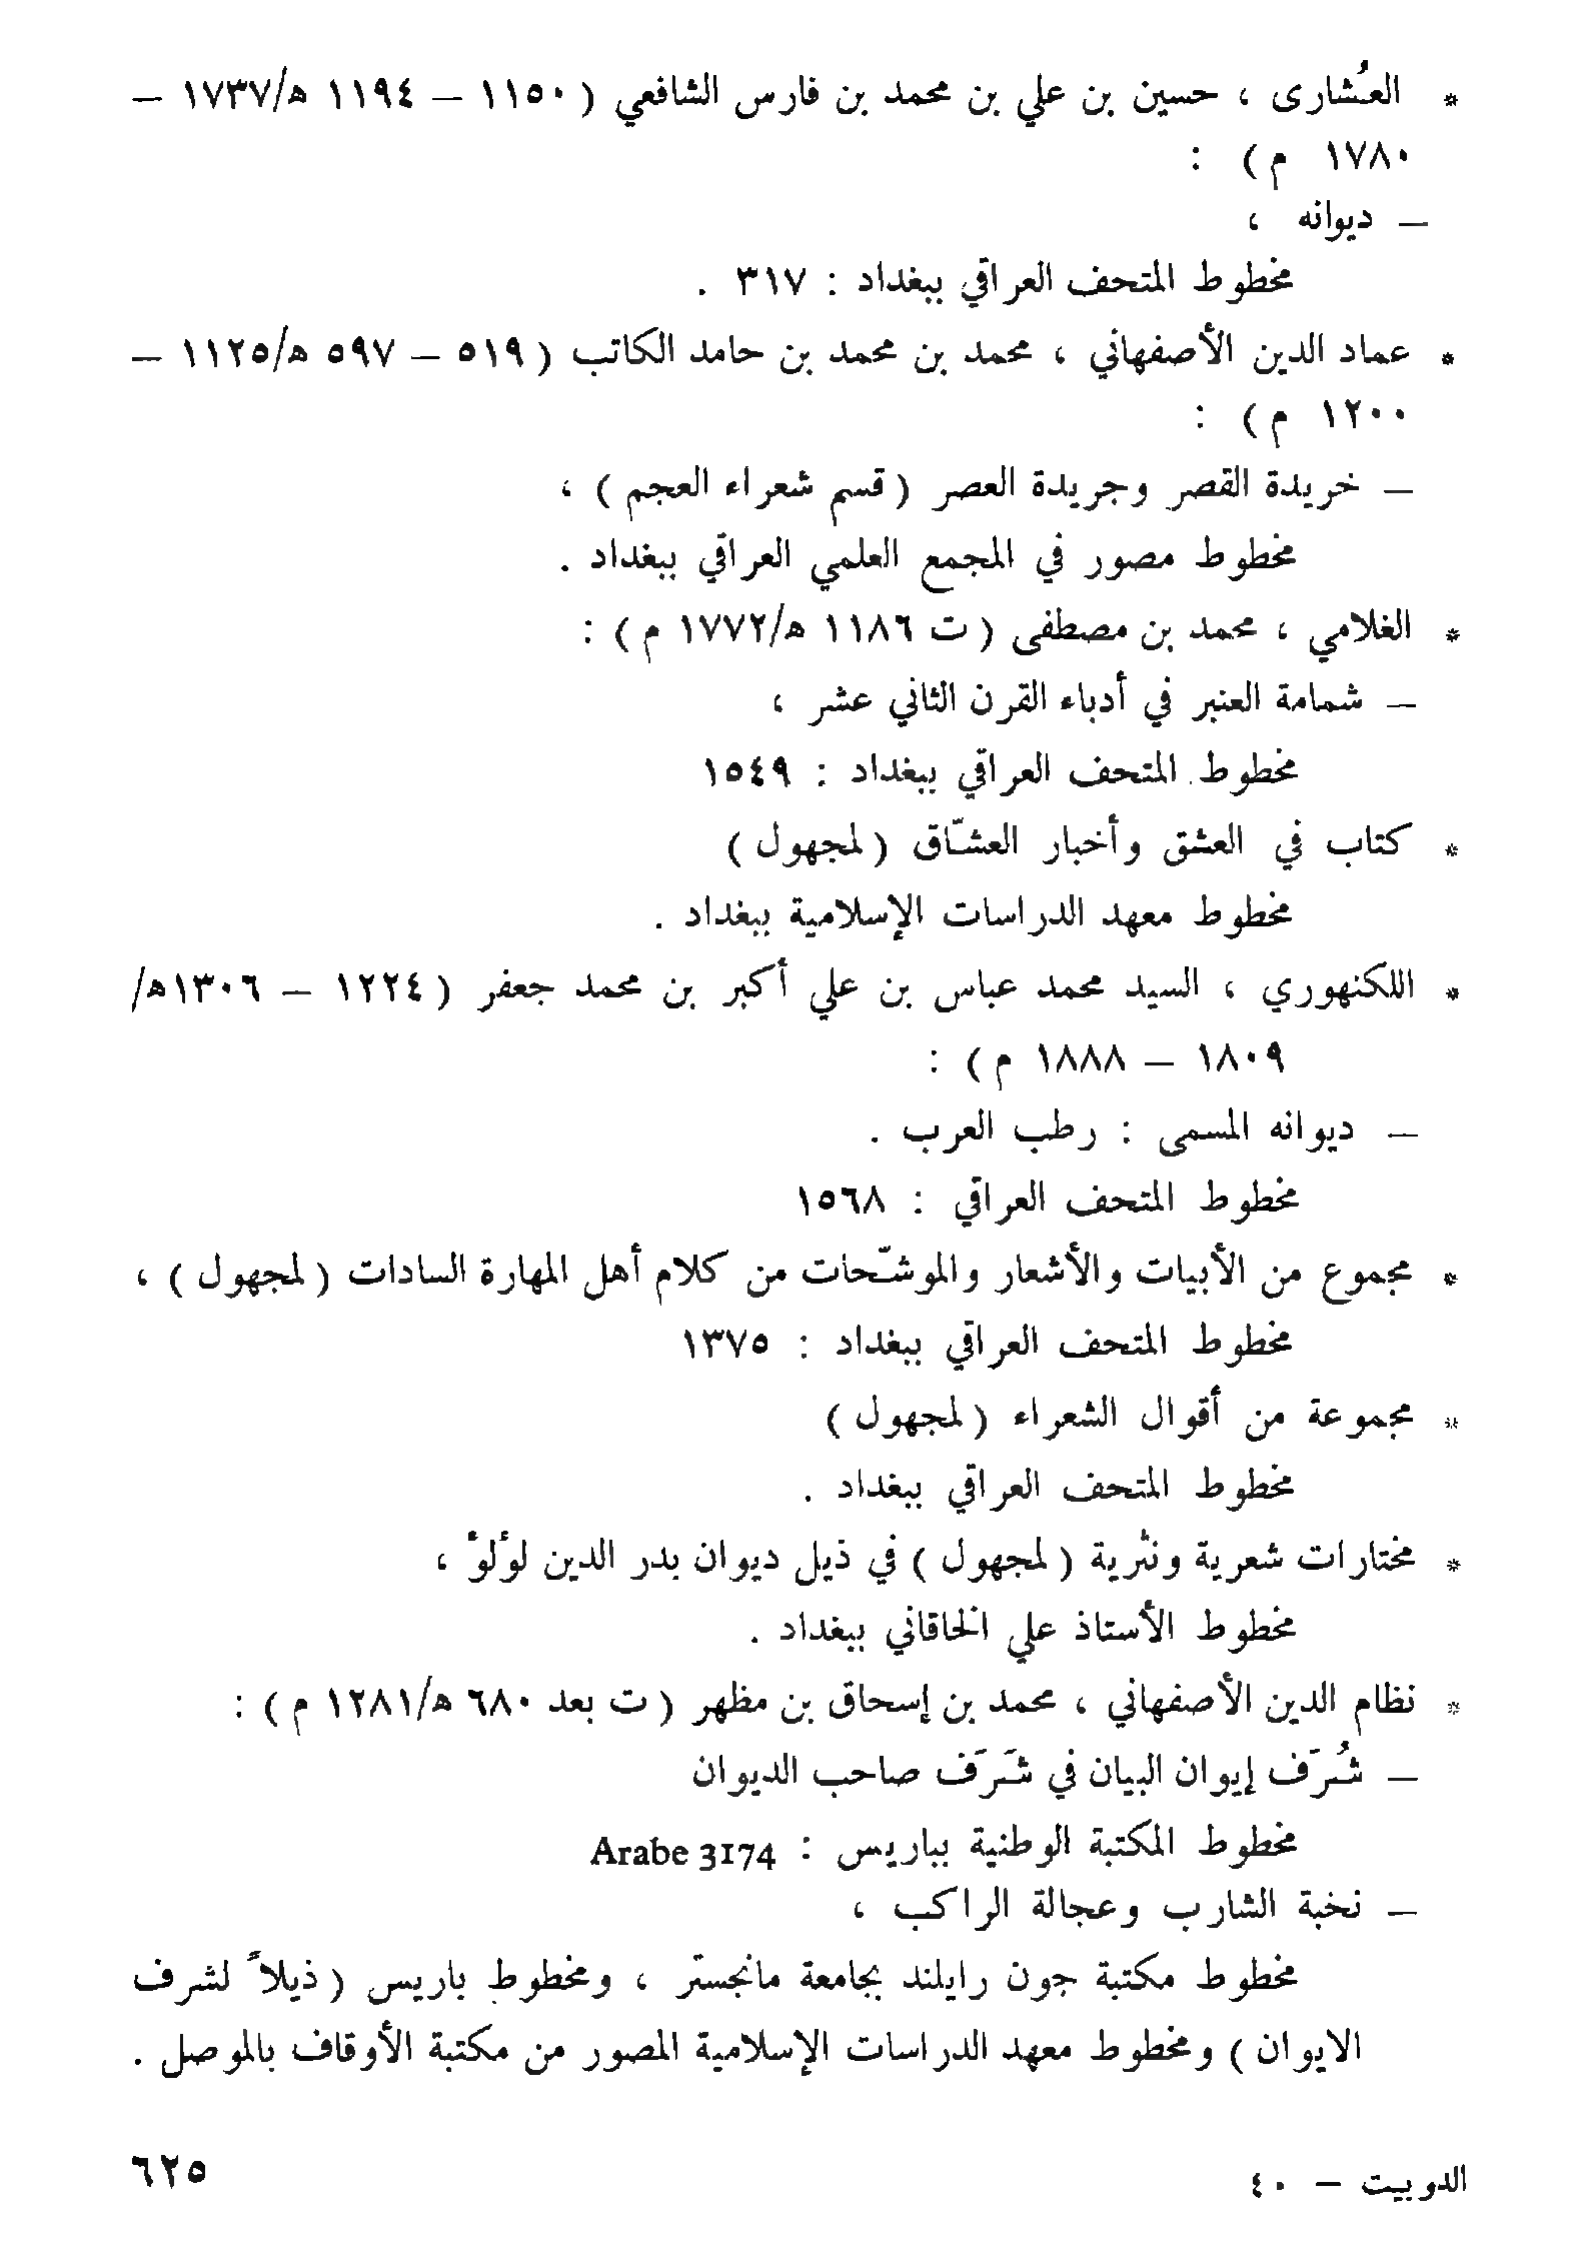 * العُشارى ، حسين بن علي بن محمد بن فارس الشافعي ( ١١٥٠ – ١١٩٤ ه/١٧٣٧ –
١٧٨٠ م ) :
– ديوانه ،
مخطوط المتحف العراقي ببغداد : ٣١٧ .
* عماد الدين الأصفهاني ، محمد بن محمد بن حامد الكاتب ( ٥١٩ – ٥٩٧ ه/١١٢٥ –
١٢٠٠ م ) :
– خريدة القصر وجريدة العصر ( قسم شعراء العجم ) ،
مخطوط مصور في المجمع العلمي العراقي ببغداد .
* الغلامي ، محمد بن مصطفى ( ت ١١٨٦ ه/١٧٧٢ م ) :
– شمامة العنبر في أدباء القرن الثاني عشر ،
مخطوط المتحف العراقي ببغداد : ١٥٤٩
* كتاب في العشق وأخبار العشّاق ( لمجهول )
مخطوط معهد الدراسات الإسلامية ببغداد .
* اللكنهوري ، السيد محمد عباس بن علي أكبر بن محمد جعفر ( ١٢٢٤ – ١٣٠٦ه/
١٨٠٩ – ١٨٨٨ م ) :
– ديوانه المسمى : رطب العرب .
مخطوط المتحف العراقي : ١٥٦٨
* مجموع من الأبيات والأشعار والموشّحات من كلام أهل المهارة السادات ( لمجهول ) ،
مخطوط المتحف العراقي ببغداد : ١٣٧٥
* مجموعة من أقوال الشعراء ( لمجهول )
مخطوط المتحف العراقي ببغداد .
* مختارات شعرية ونثرية ( لمجهول ) في ذيل ديوان بدر الدين لؤلؤ ،
مخطوط الأستاذ علي الخاقاني ببغداد .
* نظام الدين الأصفهاني ، محمد بن إسحاق بن مظهر ( ت بعد ٦٨٠ ه/١٢٨١ م ) :
– شُرَف إيوان البيان في شَرَف صاحب الديوان
مخطوط المكتبة الوطنية بباريس : Arabe 3174
– نخبة الشارب وعجالة الراكب ،
مخطوط مكتبة جون رايلند بجامعة مانجستر ، ومخطوط باريس ( ذيلاً لشرف
الايوان ) ومخطوط معهد الدراسات الإسلامية المصور من مكتبة الأوقاف بالموصل .
الدوبيت – ٤٠
٦٢٥